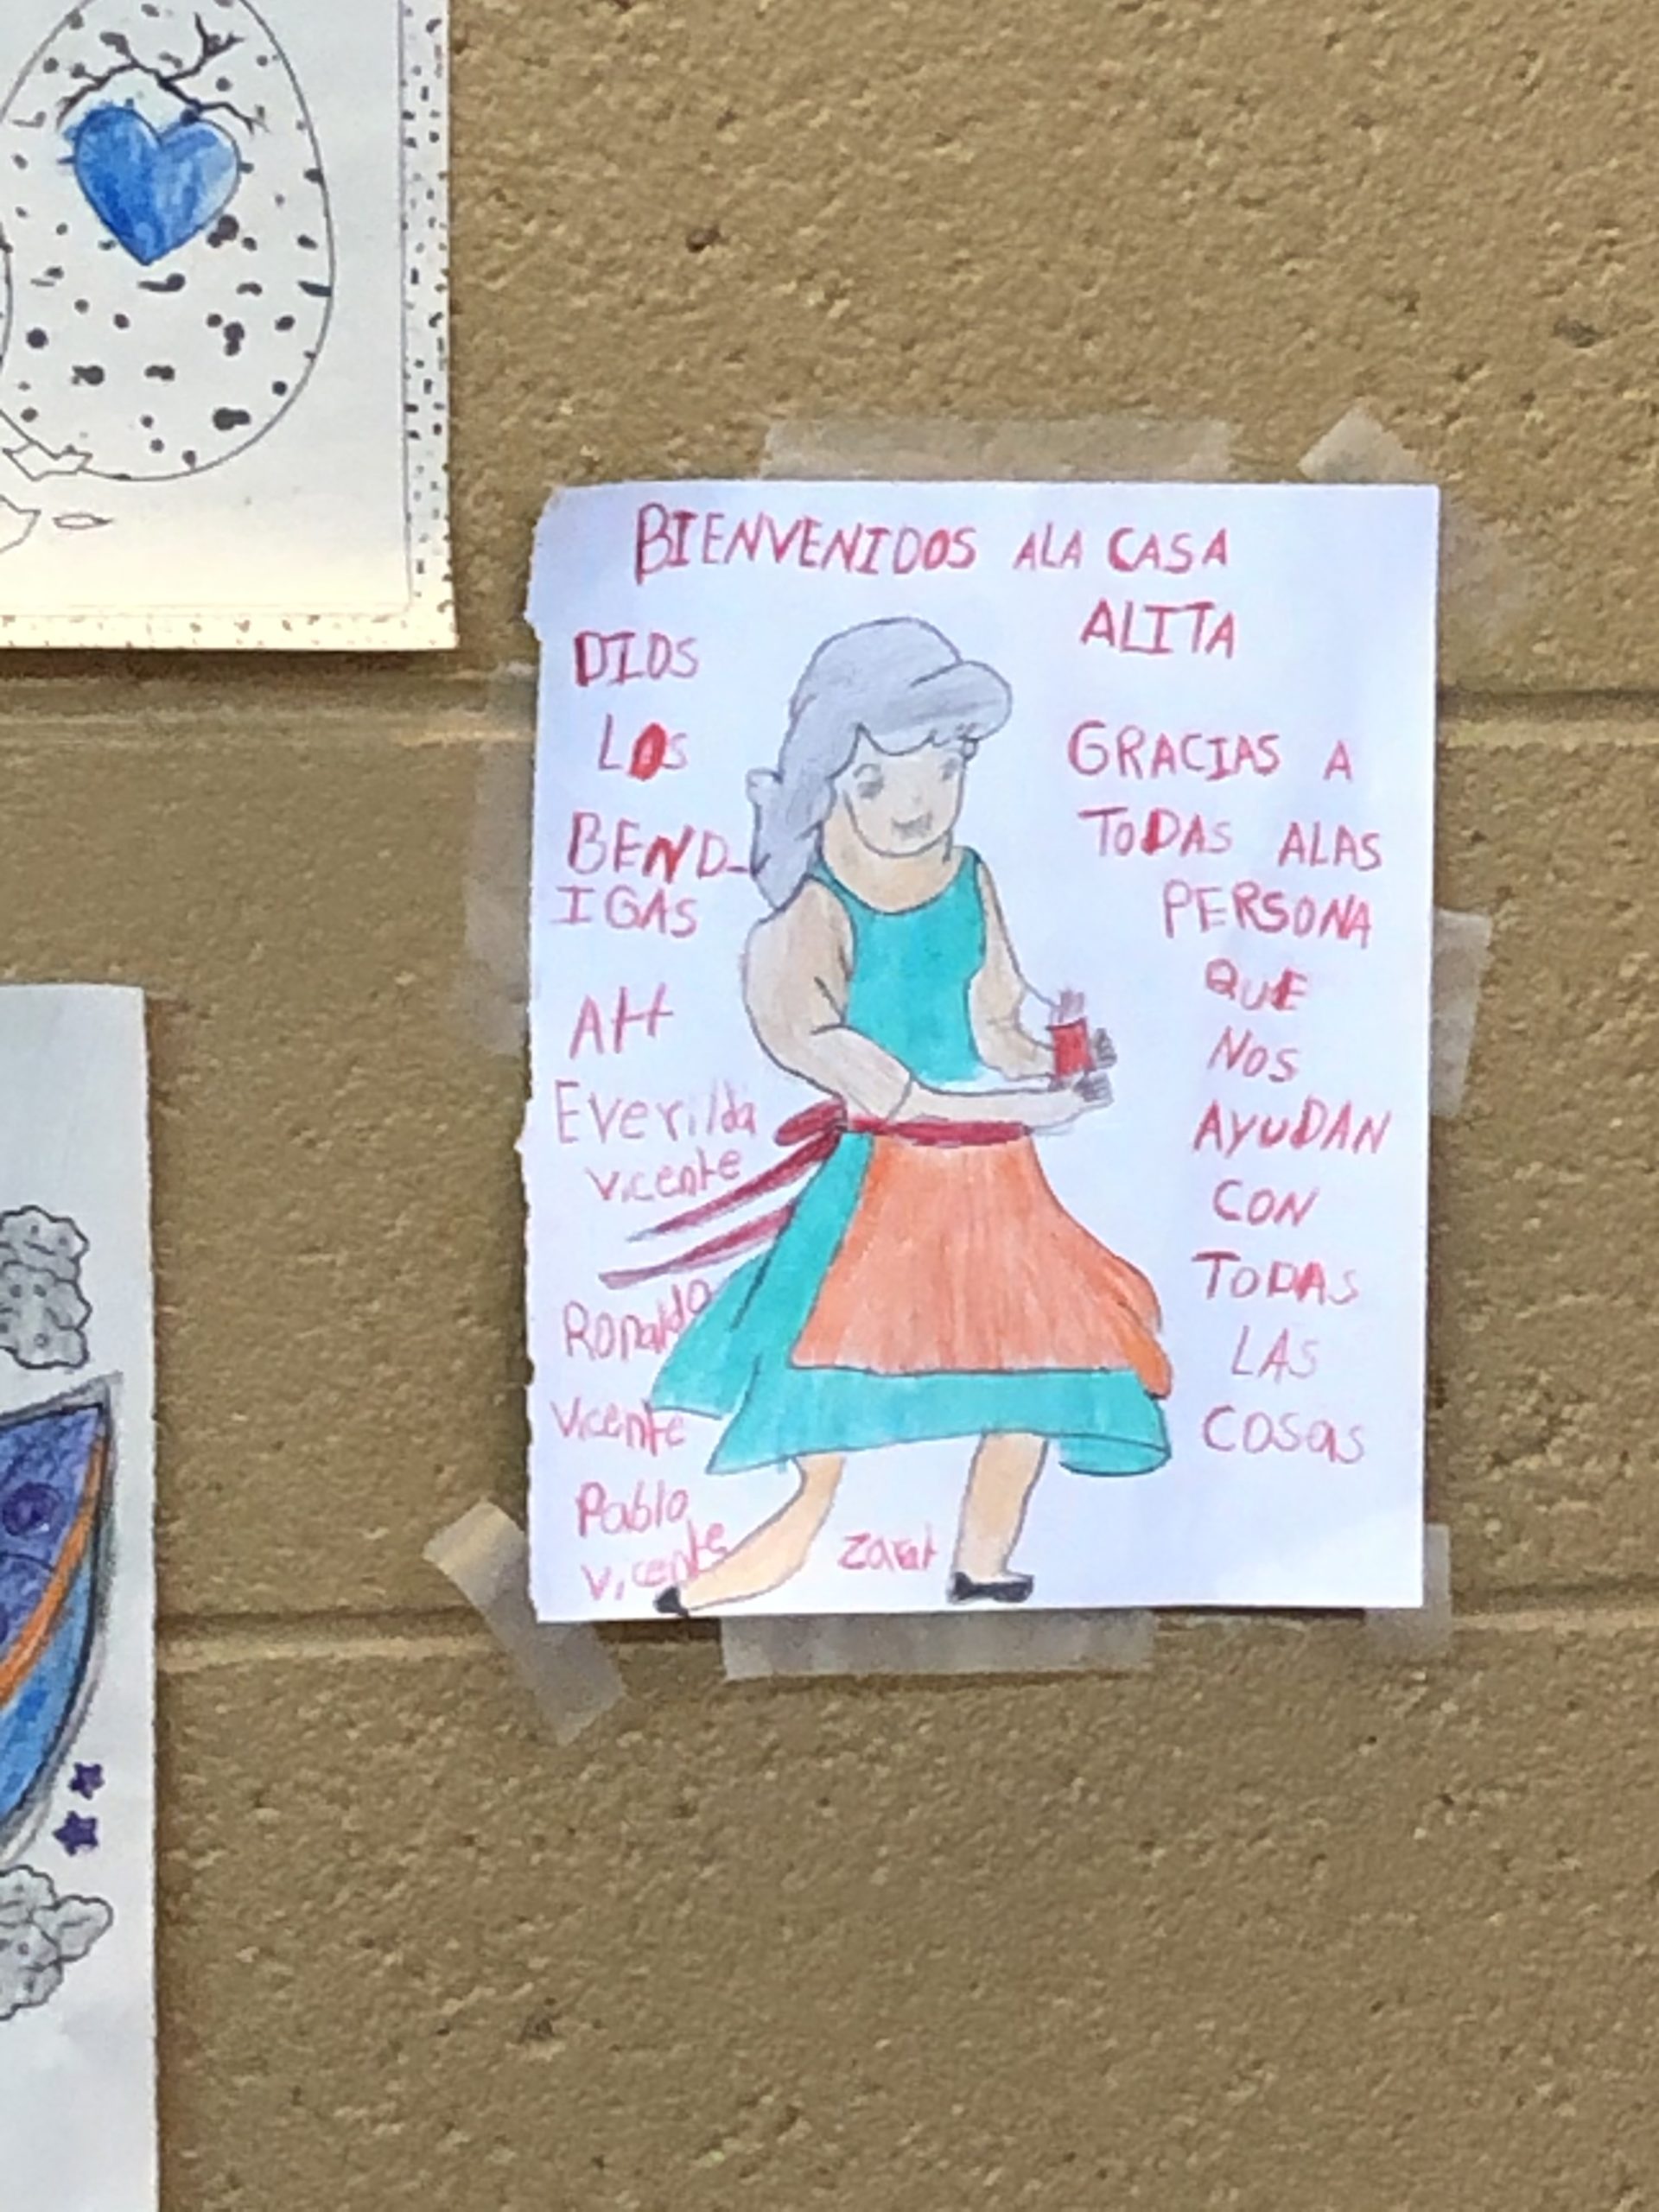 BIENVENIDOS ALA CASA
ALITA
DIOS
LOS
BEND-
IGAS
AH
Everilda
vicente
Ronaldo
vicente
Pablo
vicente
zarat
GRACIAS A
TODAS ALAS
PERSONA
QUE
NOS
AYUDAN
CON
TODAS
LAS
COSAS